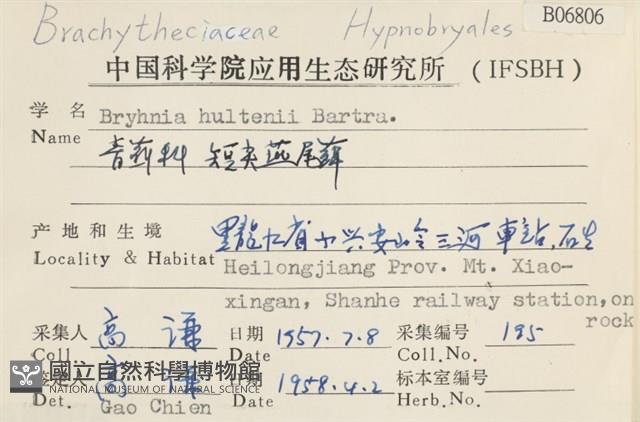 Brachytheciaceae Hypnobryales B06806
中国科学院应用生态研究所 (IFSBH)
学名 Bryhnia hultenii Bartra.
Name 青藓科 短尖燕尾藓
产地和生境 黑龍江省小兴安岭三河車站,石生
Locality & Habitat Heilongjiang Prov. Mt. Xiao-
xingan, Shanhe railway station, on
rock
采集人 高谦 日期 1957.7.8 采集编号 195
Coll. Date Coll.No.
國立自然科學博物館
NATIONAL MUSEUM OF NATURAL SCIENCE
签定人 高谦 日期 1958.4.2 标本室编号
Det. Gao Chien Date Herb.No.